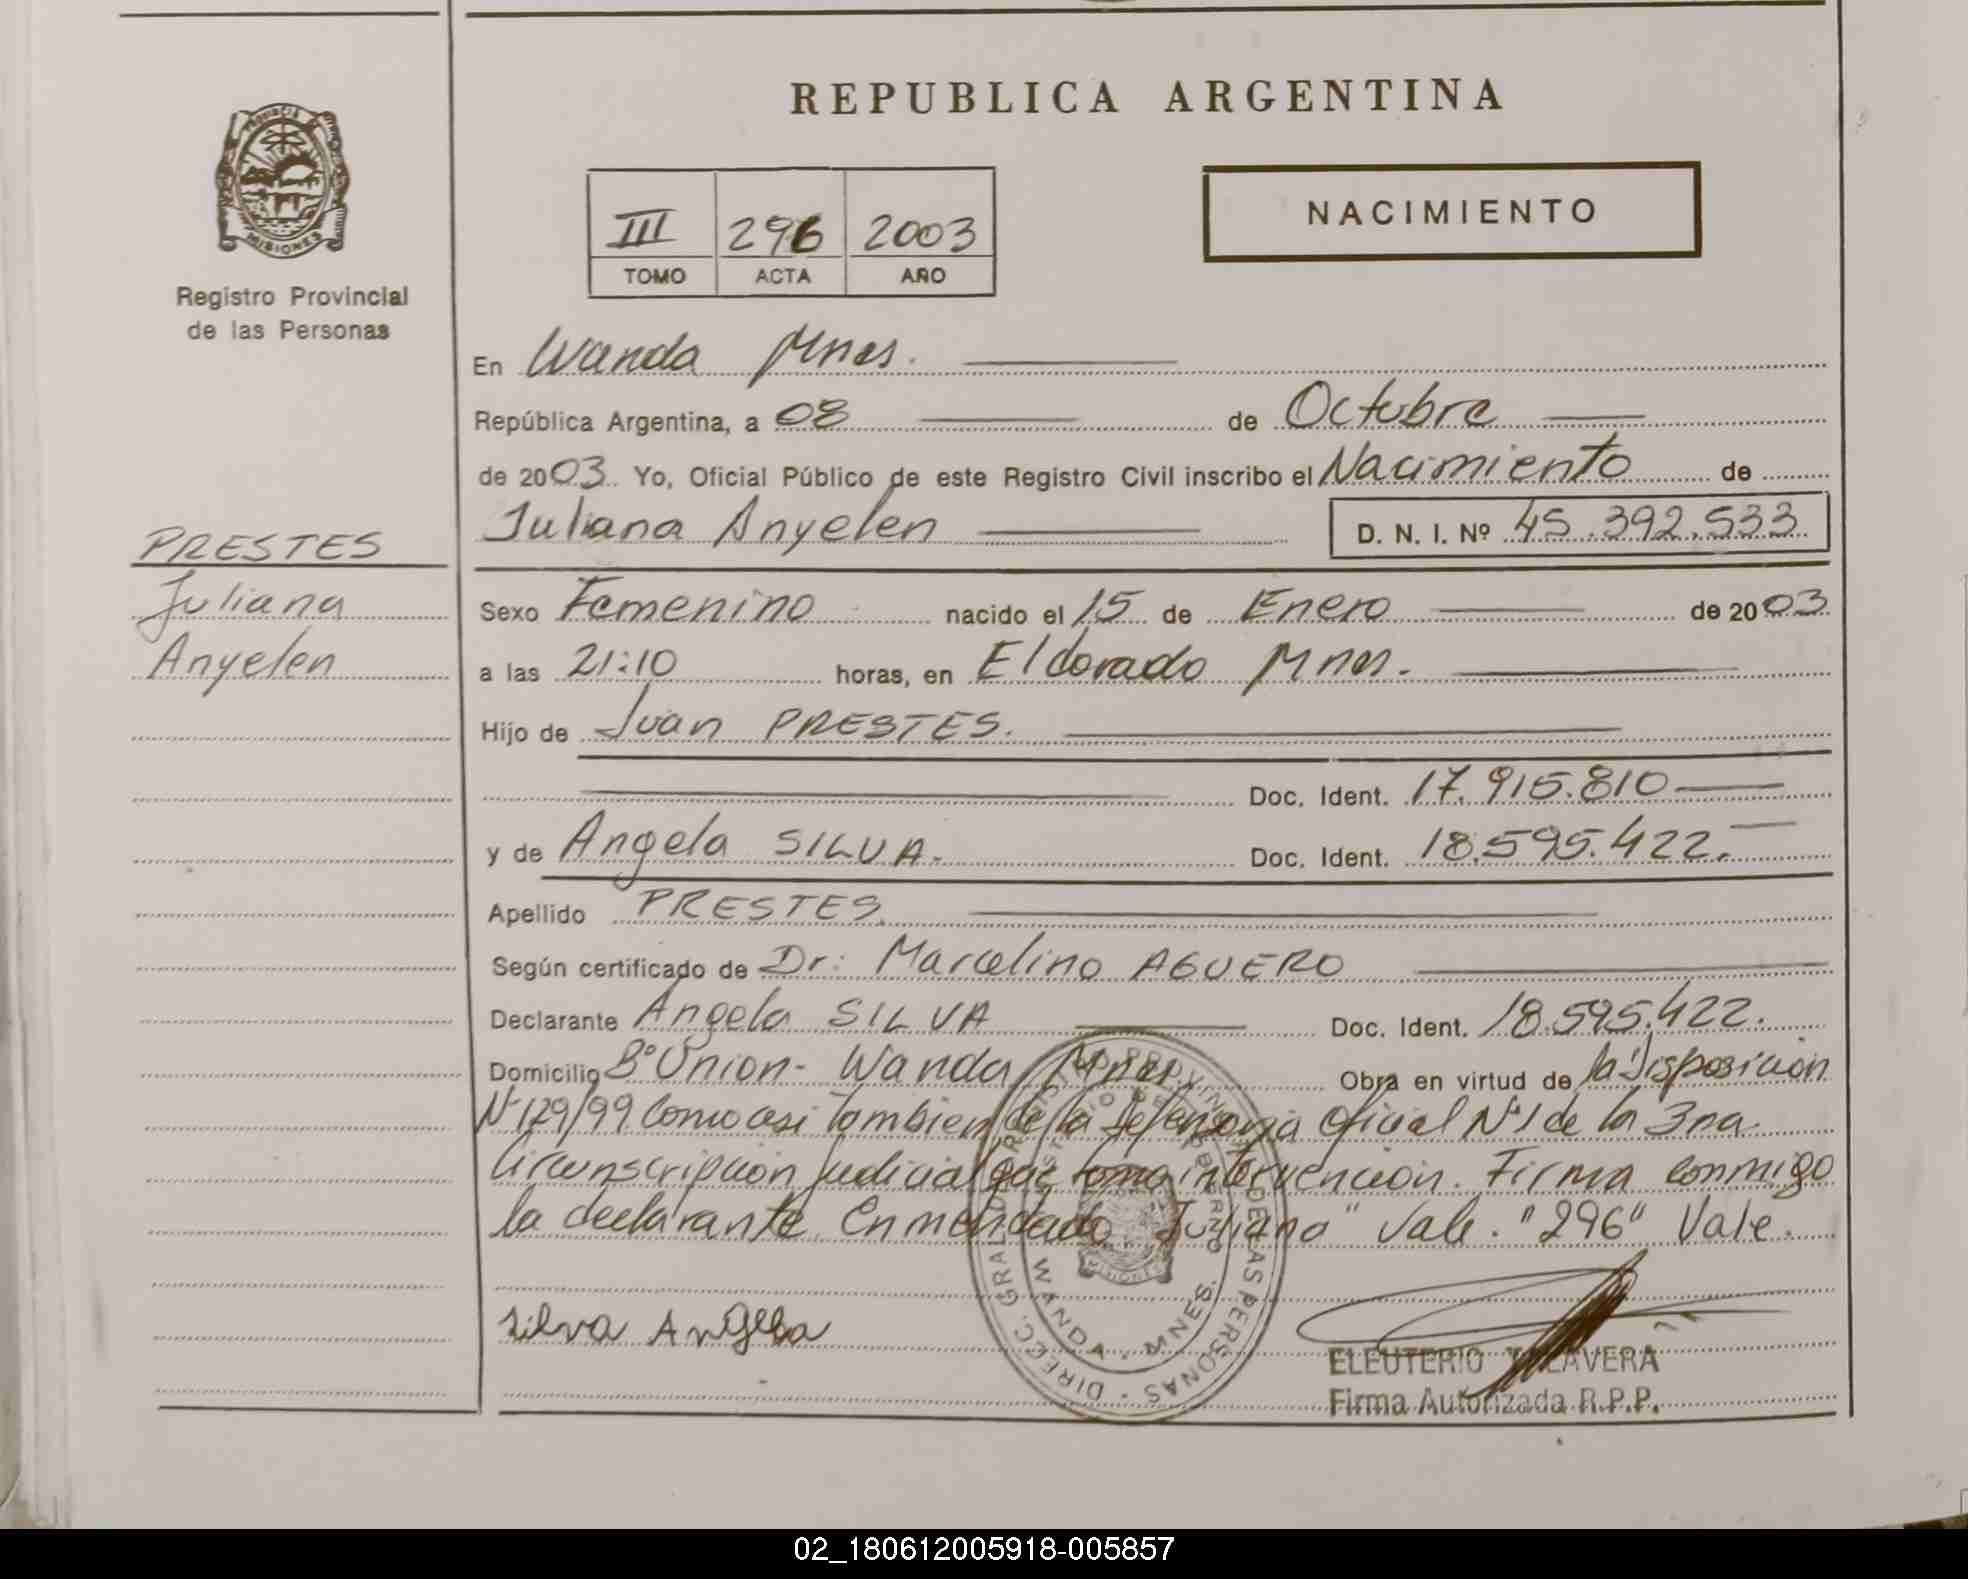 REPUBLICA ARGENTINA
PROVINCIA DE
MISIONES
Registro Provincial
de las Personas
III 296 2003
TOMO ACTA AÑO
NACIMIENTO
En Wanda Mnes.
República Argentina, a 08 de Octubre
de 2003. Yo, Oficial Público de este Registro Civil inscribo el Nacimiento de
Juliana Anyelen D. N. I. Nº 45.392.533.
PRESTES
Juliana
Anyelen
Sexo Femenino nacido el 15 de Enero de 2003
a las 21:10 horas, en Eldorado Mnes.
Hijo de Juan PRESTES.
Doc. Ident. 17.915.810
y de Angela SILVA. Doc. Ident. 18.595.422.
Apellido PRESTES
Según certificado de Dr: Marcelino AGUERO
Declarante Angela SILVA Doc. Ident. 18.595.422.
Domicilio Bº Union - Wanda Mnes. Obra en virtud de la Disposición
Nº 129/99 como asi tambien de la Defensoria Oficial Nº1 de la 3ra.
Circunscripción Judicial que toma intervención. Firma conmigo
la declarante. Enmendado "Juliana" Vale. "296" Vale.
Silva Angela
WANDA - MNES.
ELEUTERIO TALAVERA
Firma Autorizada R.P.P.
02_180612005918-005857